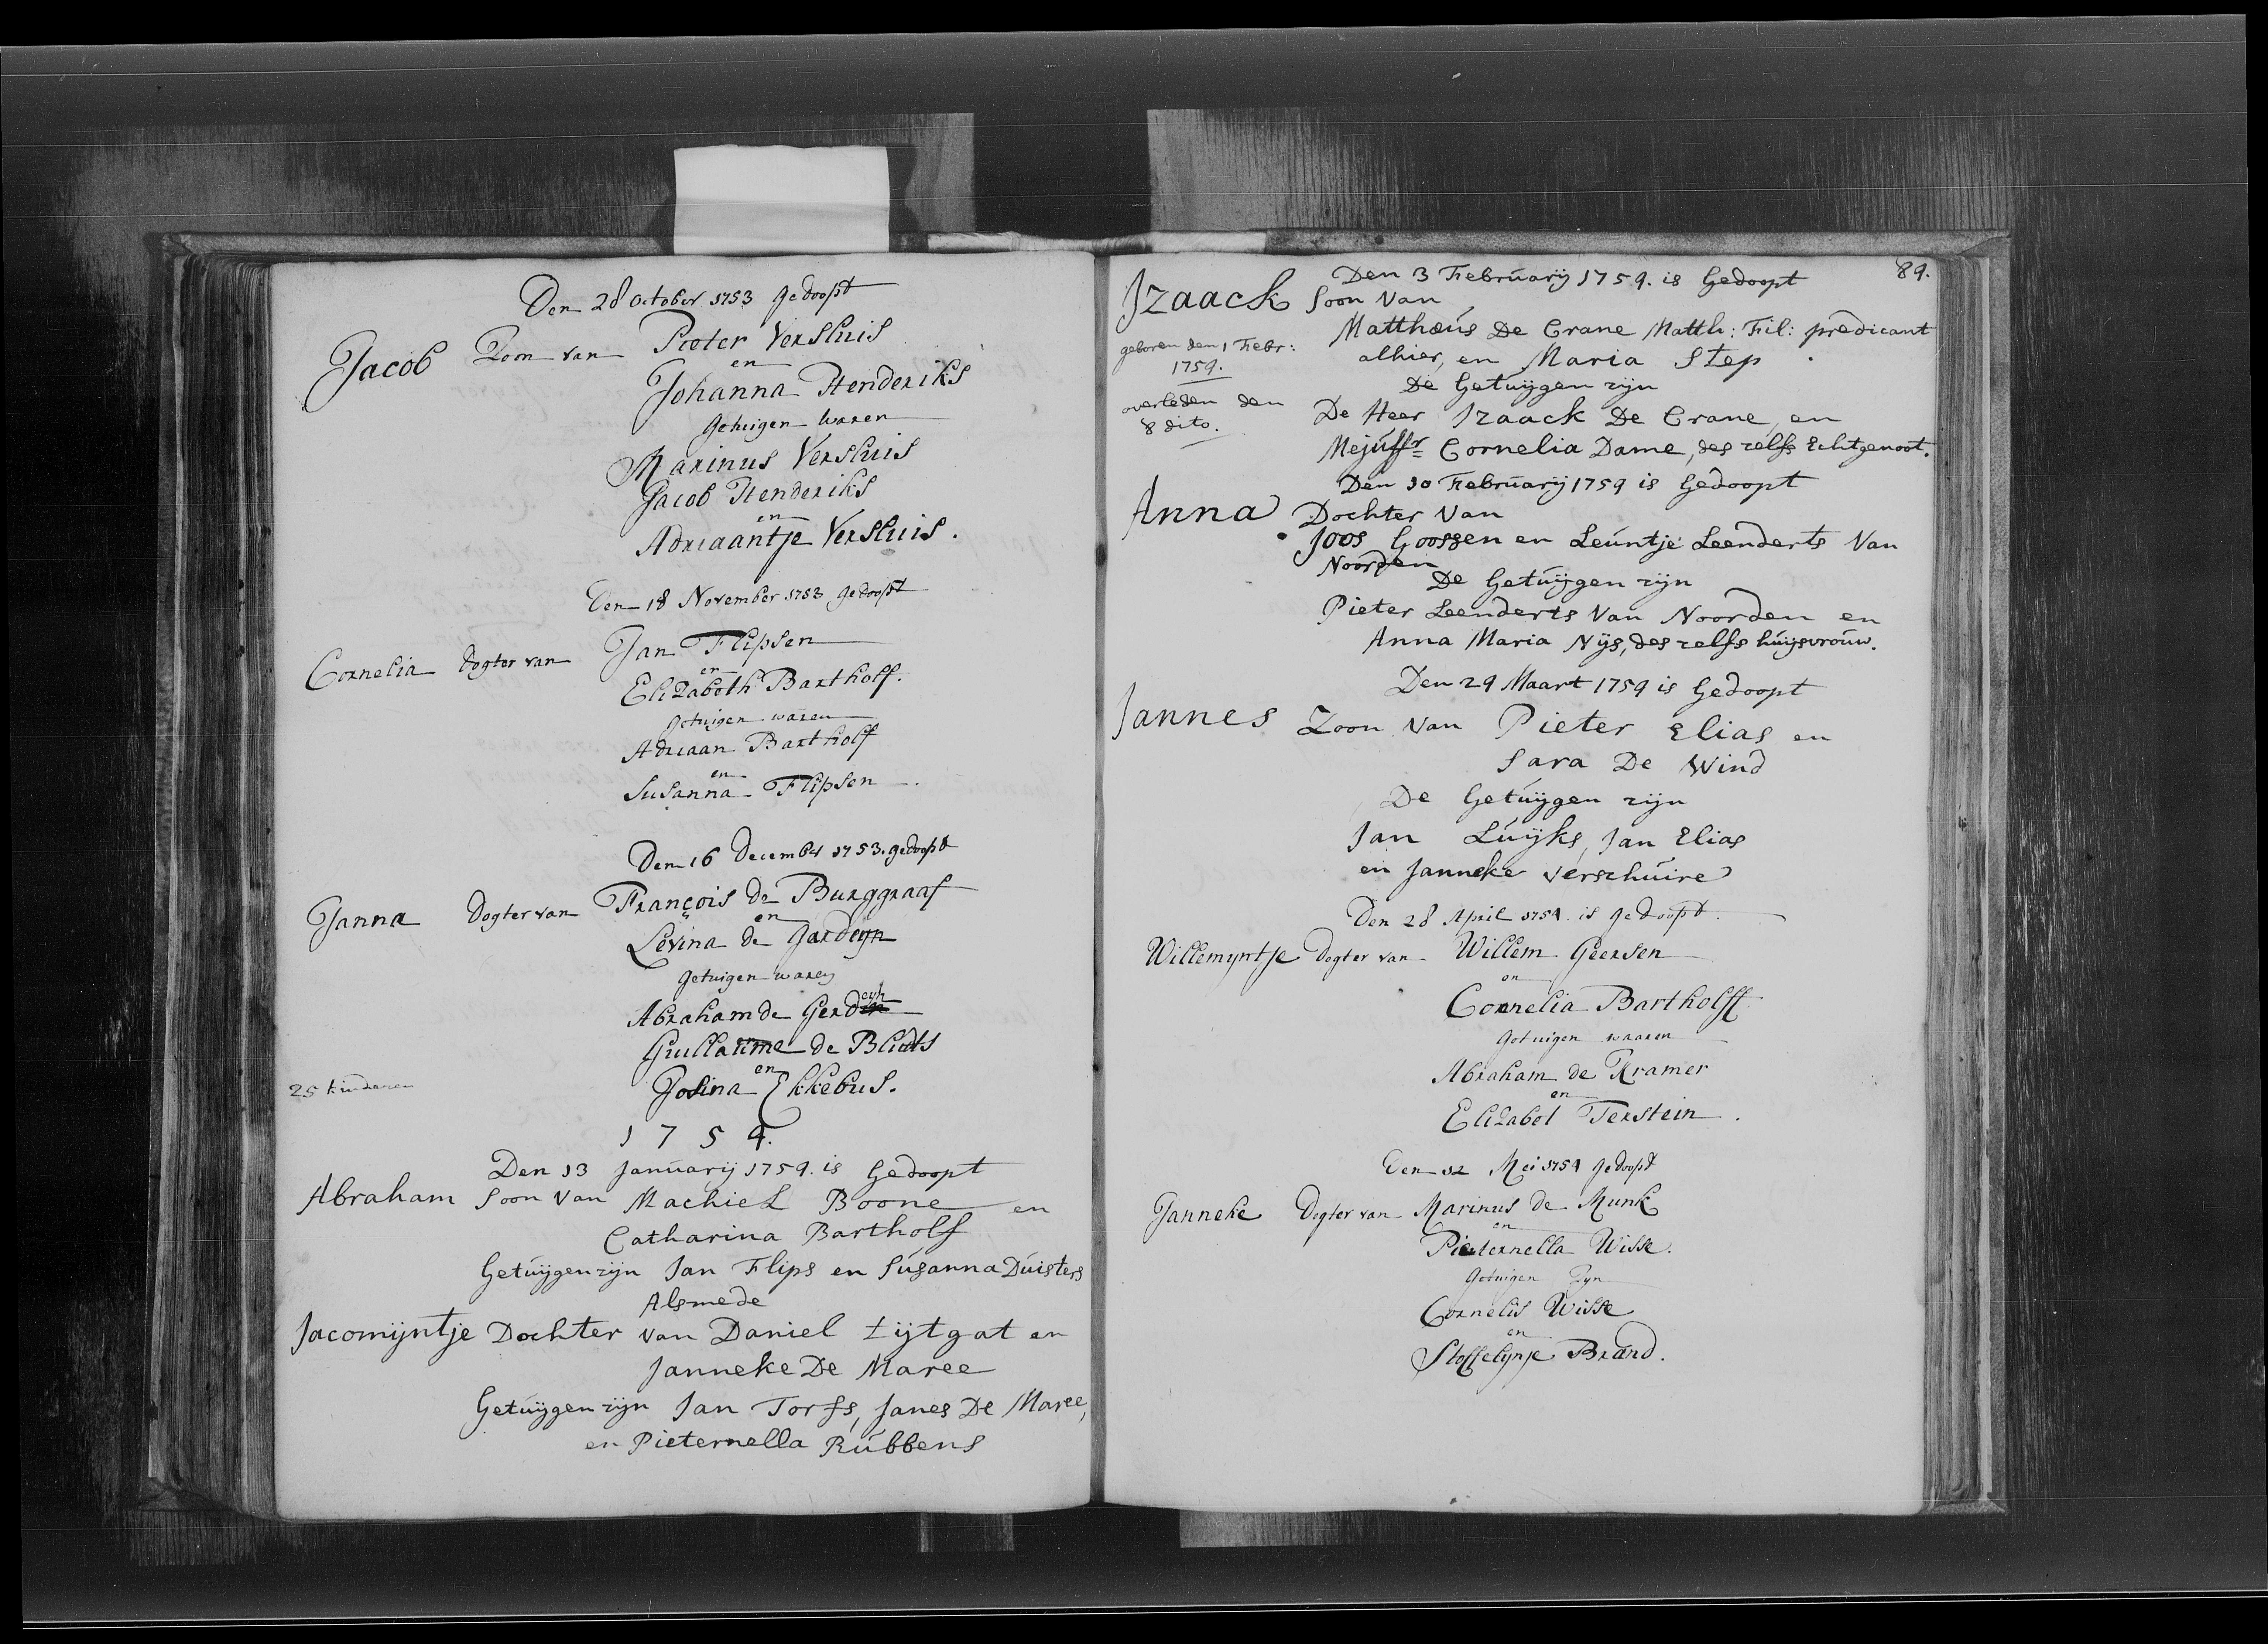 Den 28 October 1753 gedoopt
Jacob Zoon van Pieter Versluis
en
Johanna Henderiks
Getuigen waren
Marinus Versluis
Jacob Henderiks
en
Adriaantje Versluis.
Den 18 November 1753 gedoopt
Cornelia dogter van Jan Flipsen
en
Elizabeth Bartholf.
getuigen waren
Adriaan Bartholf
en
Susanna Flipsen.
Den 16 December 1753. gedoopt
Janna Dogter van François de Burggraaf
en
Levina de Gardeyn
getuigen waren
Abraham de Gerdeyn
Guillaume de Blidts
en
Josina Ekkebus.
25 kinderen
1754.
Den 13 Januarij 1754. is Gedoopt
Abraham Soon van Machiel Boone en
Catharina Bartholf
Getuijgen zijn Jan Flips en Susanna Duisters
Alsmede
Jacomijntje Dochter van Daniel Lijtgat en
Janneke De Maree
Getuijgen zijn Jan Torfs, Janes De Maree,
en Pieternella Rubbens
89.
Den 3 Februarij 1754. is Gedoopt
Izaack Soon van
Matthæus De Crane Matth: Fil: predicant
alhier, en Maria Step.
geboren den 1 Febr:
1754.
overleden den
8 dito.
De Getuijgen zijn
De Heer Izaack De Crane, en
Mejuffr= Cornelia Dame, des zelfs Echtgenoot.
Den 10 Februarij 1754 is Gedoopt
Anna Dochter van
Joos Goossen en Leuntje Leenderts Van
Noorden
De Getuijgen zijn
Pieter Leenderts Van Noorden en
Anna Maria Nijs, des zelfs huijsvrouw.
Den 24 Maart 1754 is Gedoopt
Jannes Zoon van Pieter Elias en
Sara De Wind
De Getuijgen zijn
Jan Luijks, Jan Elias
en Janneke Verschuire
Den 28 April 1754. is gedoopt.
Willemyntje dogter van Willem Geersen
en
Cornelia Bartholff
Getuigen waaren
Abraham de Kramer
en
Elizabet Terstein.
Den 12 Mei 1754 gedoopt
Janneke Dogter van Marinus de Munk
en
Pieternella Wisse.
Getuigen Zyn
Cornelis Wisse
en
Stoffelynje Brand.